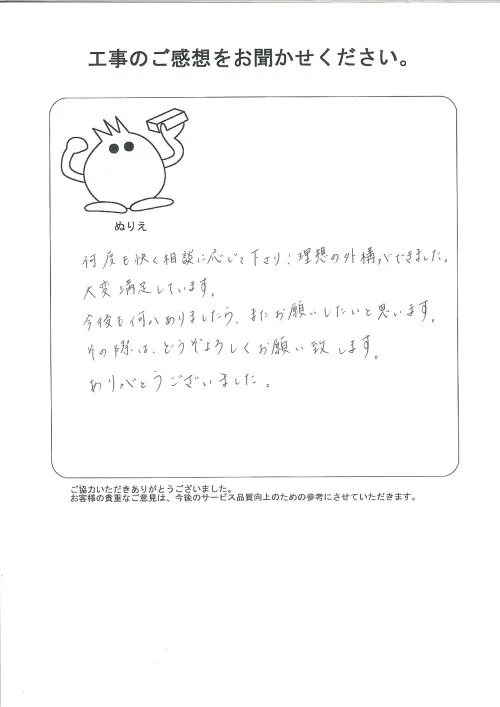 工事のご感想をお聞かせください。
ぬりえ
何度も快く相談に応じて下さり、理想の外構ができました。
大変満足しています。
今後も何かありましたら、またお願いしたいと思います。
その際は、どうぞよろしくお願い致します。
ありがとうございました。
ご協力いただきありがとうございました。
お客様の貴重なご意見は、今後のサービス品質向上のための参考にさせていただきます。